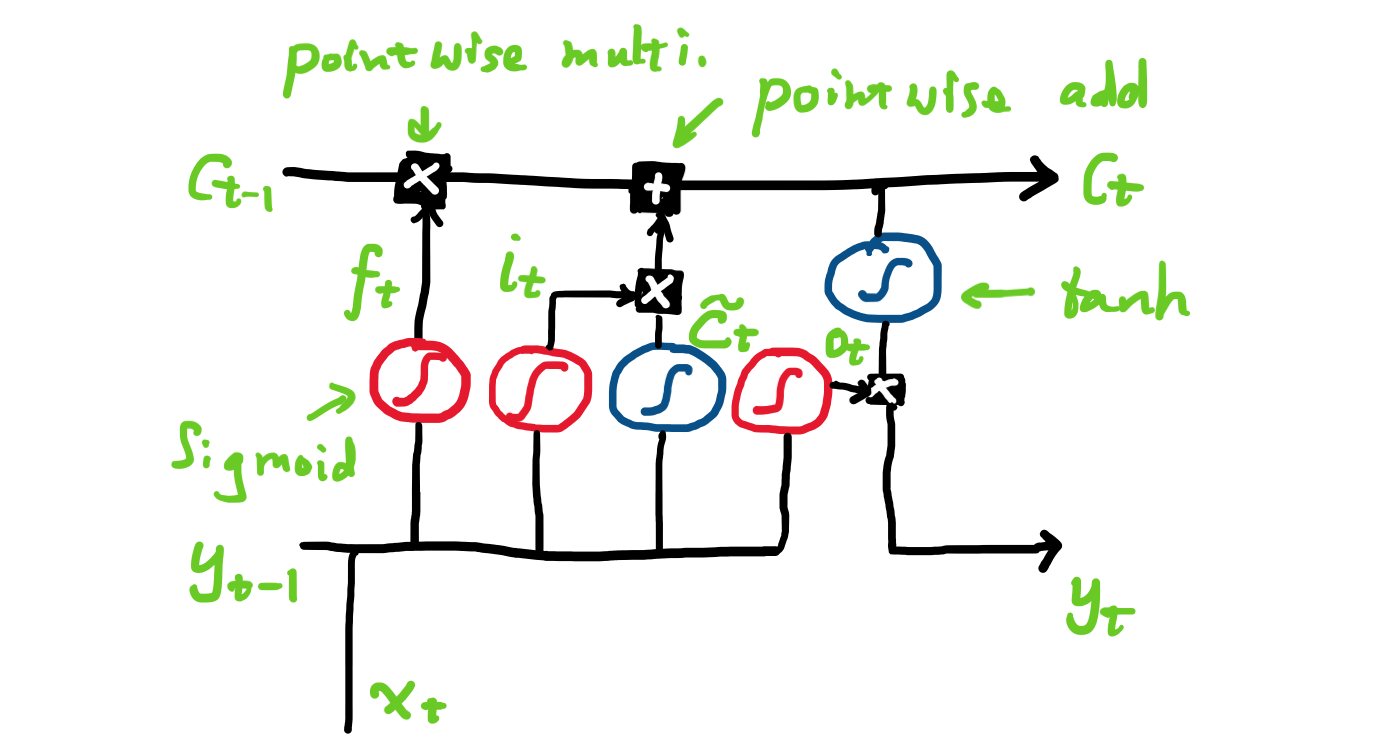 pointwise multi.
pointwise add
C_{t-1}
×
+
C_t
f_t
i_t
×
C̃_t
tanh
o_t
×
Sigmoid
y_{t-1}
y_t
x_t